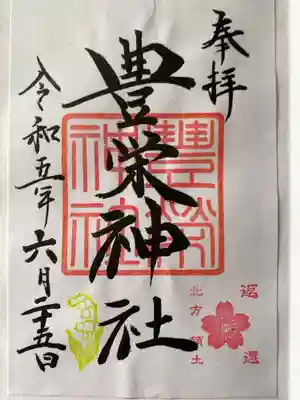 奉拝
豊栄神社
豊榮
神社
令和五年六月二十五日
返還
北方領土